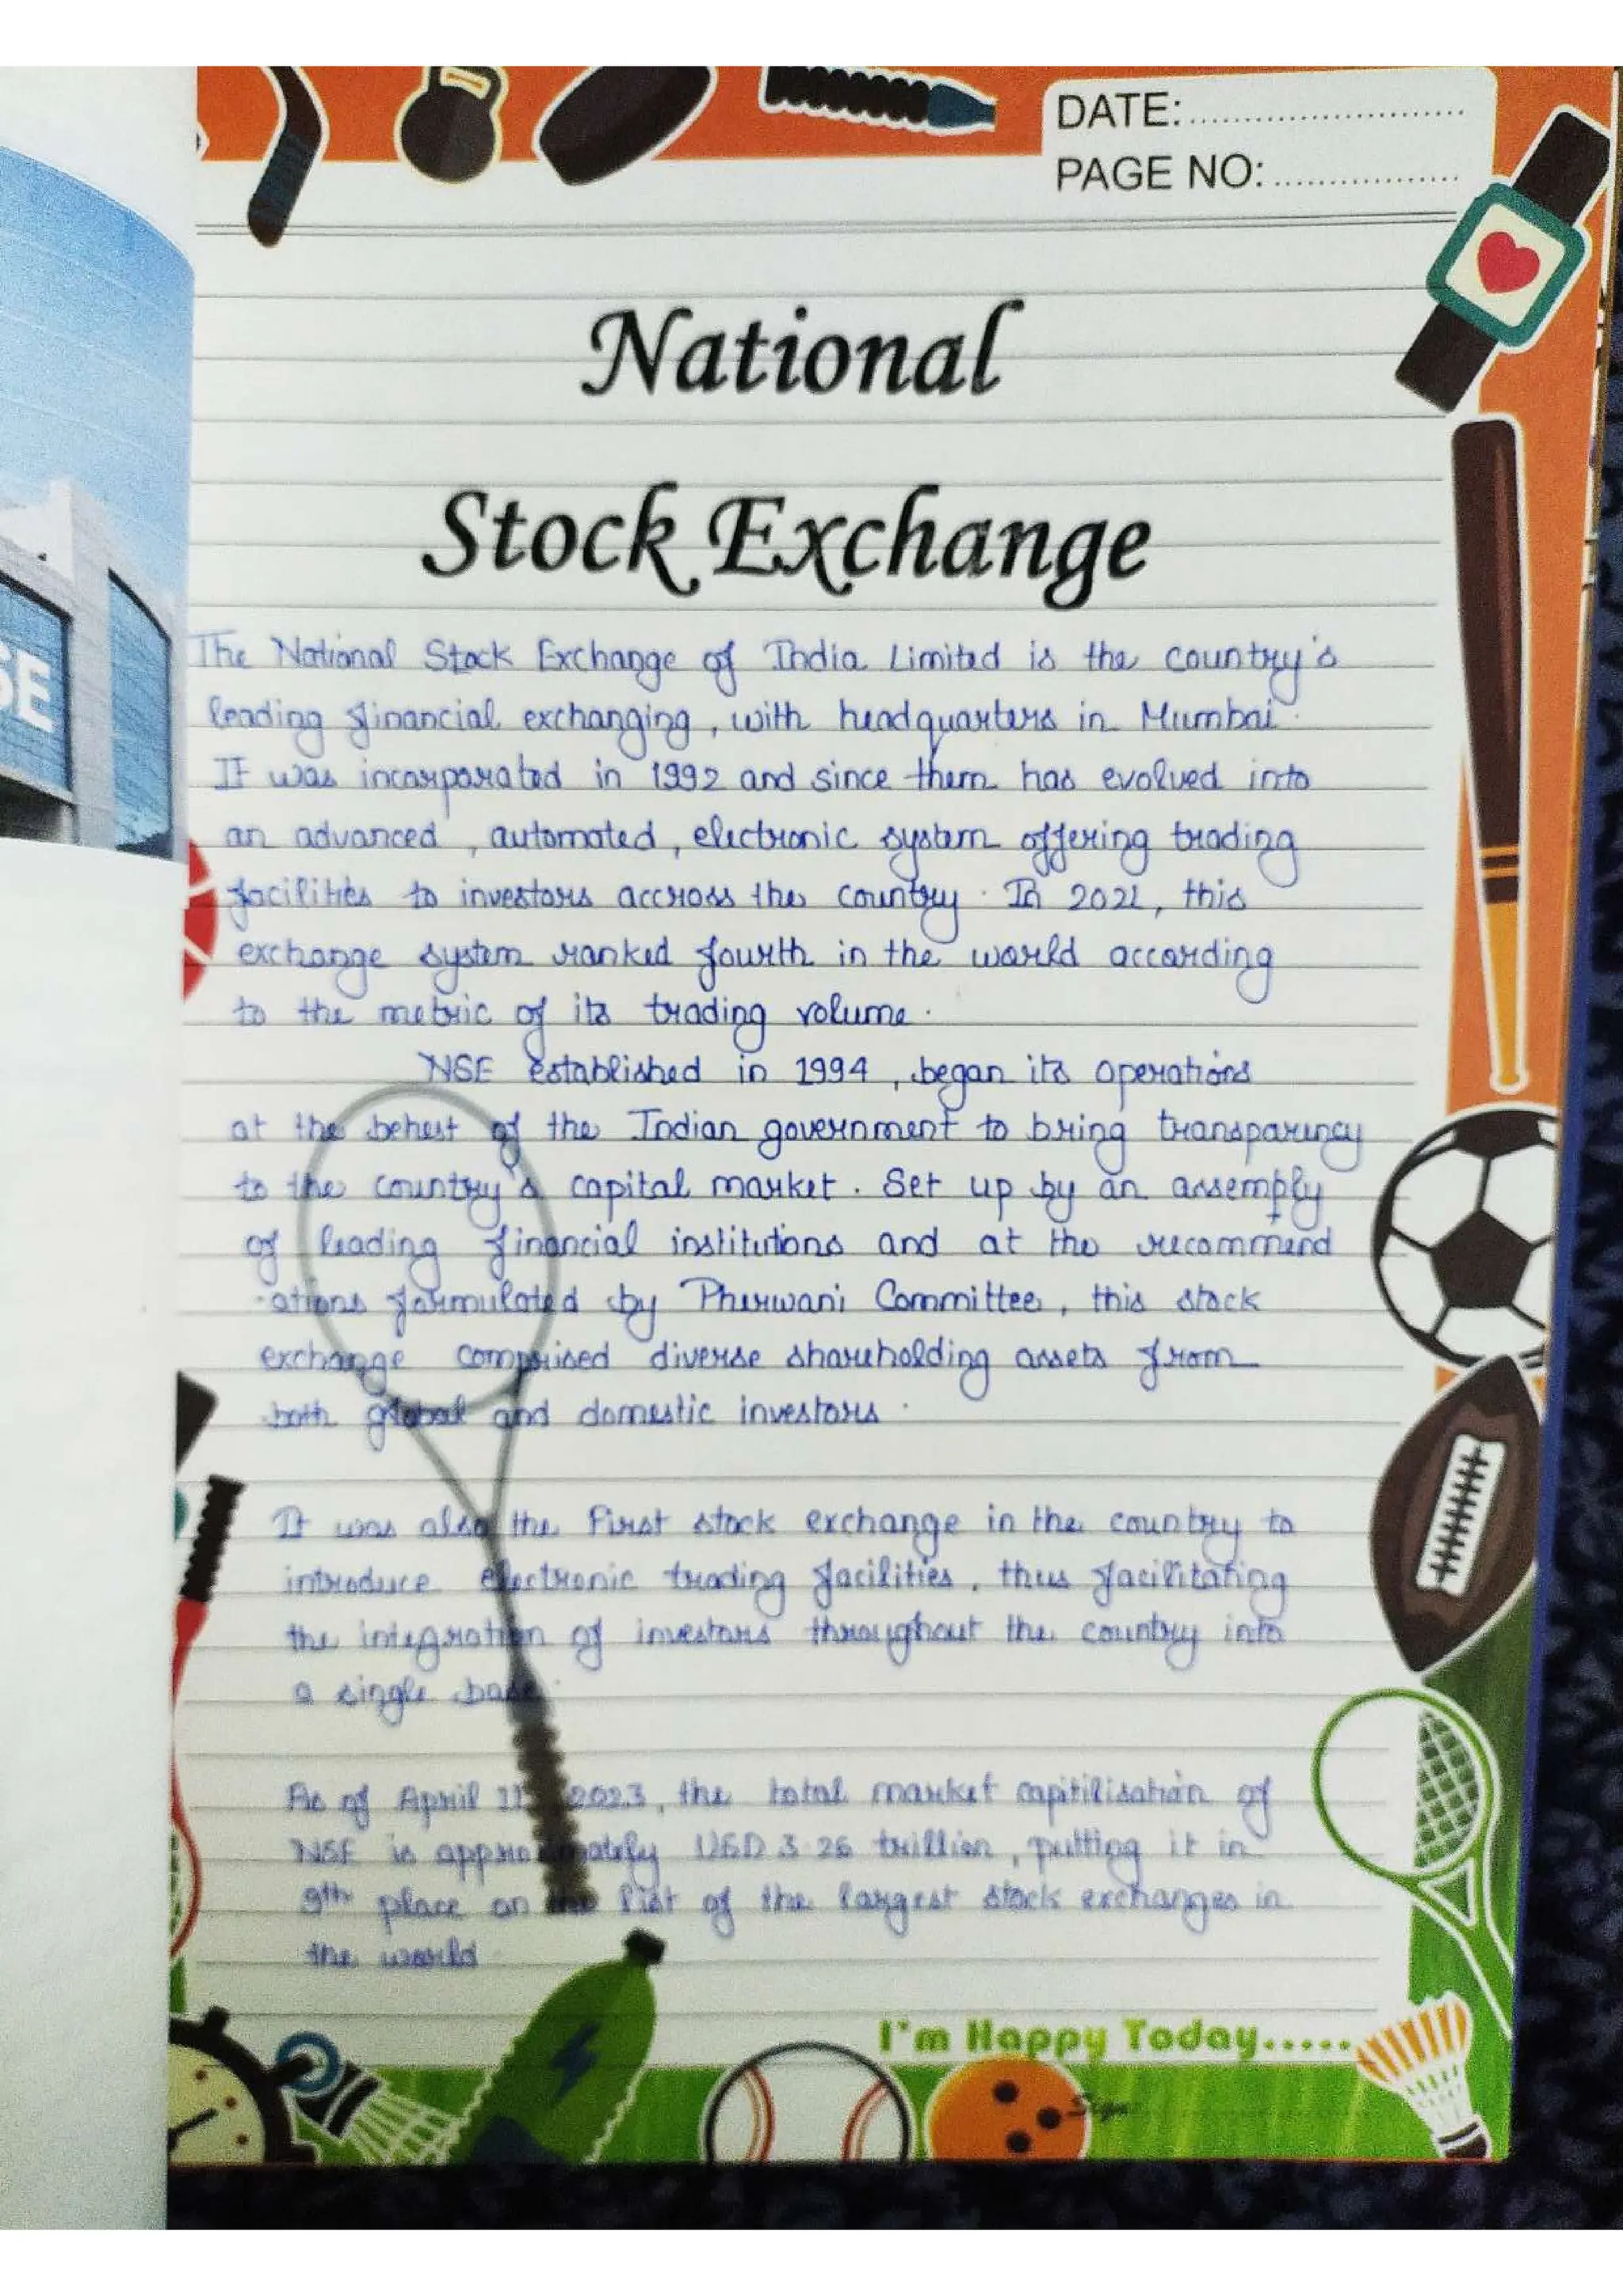 DATE:..............................
PAGE NO:....................
National
Stock Exchange
SE
The National Stock Exchange of India Limited is the country's
leading financial exchanging, with headquarters in Mumbai.
It was incorporated in 1992 and since them has evolved into
an advanced, automated, electronic system offering trading
facilities to investors accross the country. In 2021, this
exchange system ranked fourth in the world according
to the metric of its trading volume.
NSE established in 1994, began its operations
at the behest of the Indian government to bring transparency
to the country's capital market. Set up by an assemply
of leading financial institutions and at the recommend
-ations formulated by Pherwani Committee, this stock
exchange comprised diverse shareholding assets from
both global and domestic investors.
It was also the first stock exchange in the country to
introduce electronic trading facilities, thus facilitating
the integration of investors throughout the country into
a single base.
As of April 11 2023, the total market capitilisation of
NSE is approximately USD 3.26 trillion, putting it in
9th place on the list of the largest stock exchanges in
the world
I'm Happy Today.....